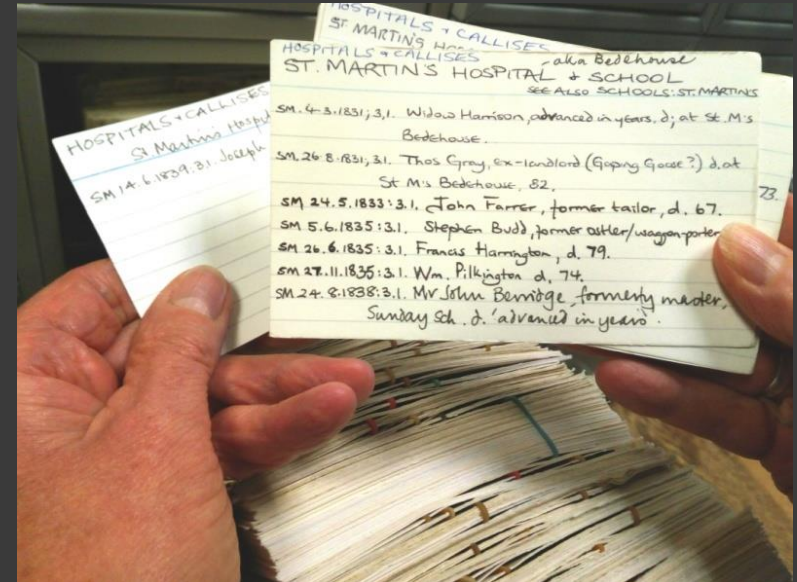 HOSPITALS + CALLISES
ST MARTIN'S
HOSPITALS + CALLISES
St Martin's Hospit
SM 14.6.1839:3.1. Joseph
HOSPITALS + CALLISES
- aka Bedehouse
ST. MARTIN'S HOSPITAL & SCHOOL
SEE ALSO SCHOOLS: ST. MARTIN'S
SM. 4.3.1831; 3,1. Widow Harrison, advanced in years, d; at St. M's
Bedehouse.
SM. 26.8.1831; 3,1. Thos Gray, ex-landlord (Gaping Goose?) d. at
St M's Bedehouse, 82.
SM 24.5.1833: 3.1. John Farrer, former tailor, d. 67.
SM. 5.6.1835: 3.1. Stephen Budd, former ostler/waggon-porter
SM. 26.6.1835: 3.1. Francis Harrington, d. 79.
SM. 27.11.1835: 3.1. Wm. Pilkington d, 74.
SM. 24.8.1838: 3.1. Mr John Berridge, formerly master,
Sunday Sch. d. 'advanced in years'.
73.